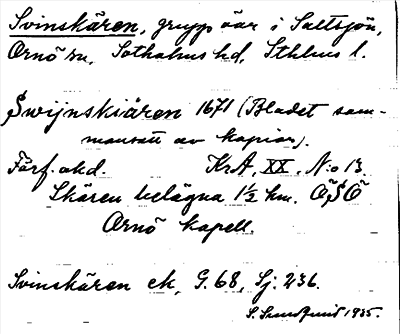 Svinskären, grupp öar i Saltsjön,
Ornö sn, Sotholms hd, Sthlms l.
Swijnskiären 1671 (Bladet sam-
mansatt av kopior).
Förf. okd. KrA, XX, N:o 13.
Skären belägna 1½ km. ÖSÖ
Ornö kapell.
Svinskären ek, G. 68, Sj: 236.
S. Sundqvist 1935.